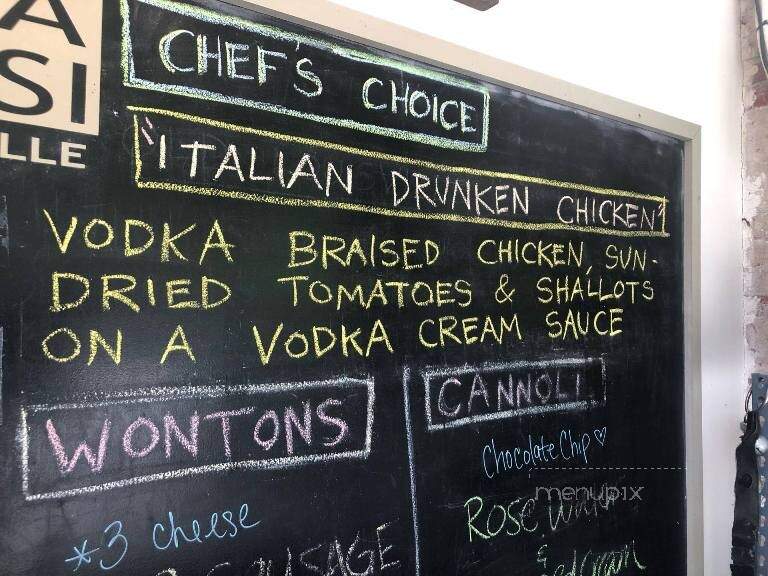 A
SI
LLE
CHEF'S CHOICE
"ITALIAN DRUNKEN CHICKEN"
VODKA BRAISED CHICKEN, SUN-
DRIED TOMATOES & SHALLOTS
ON A VODKA CREAM SAUCE
WONTONS
*3 cheese
SAUSAGE
CANNOLI
Chocolate Chip ♡
menupix
Rose
&